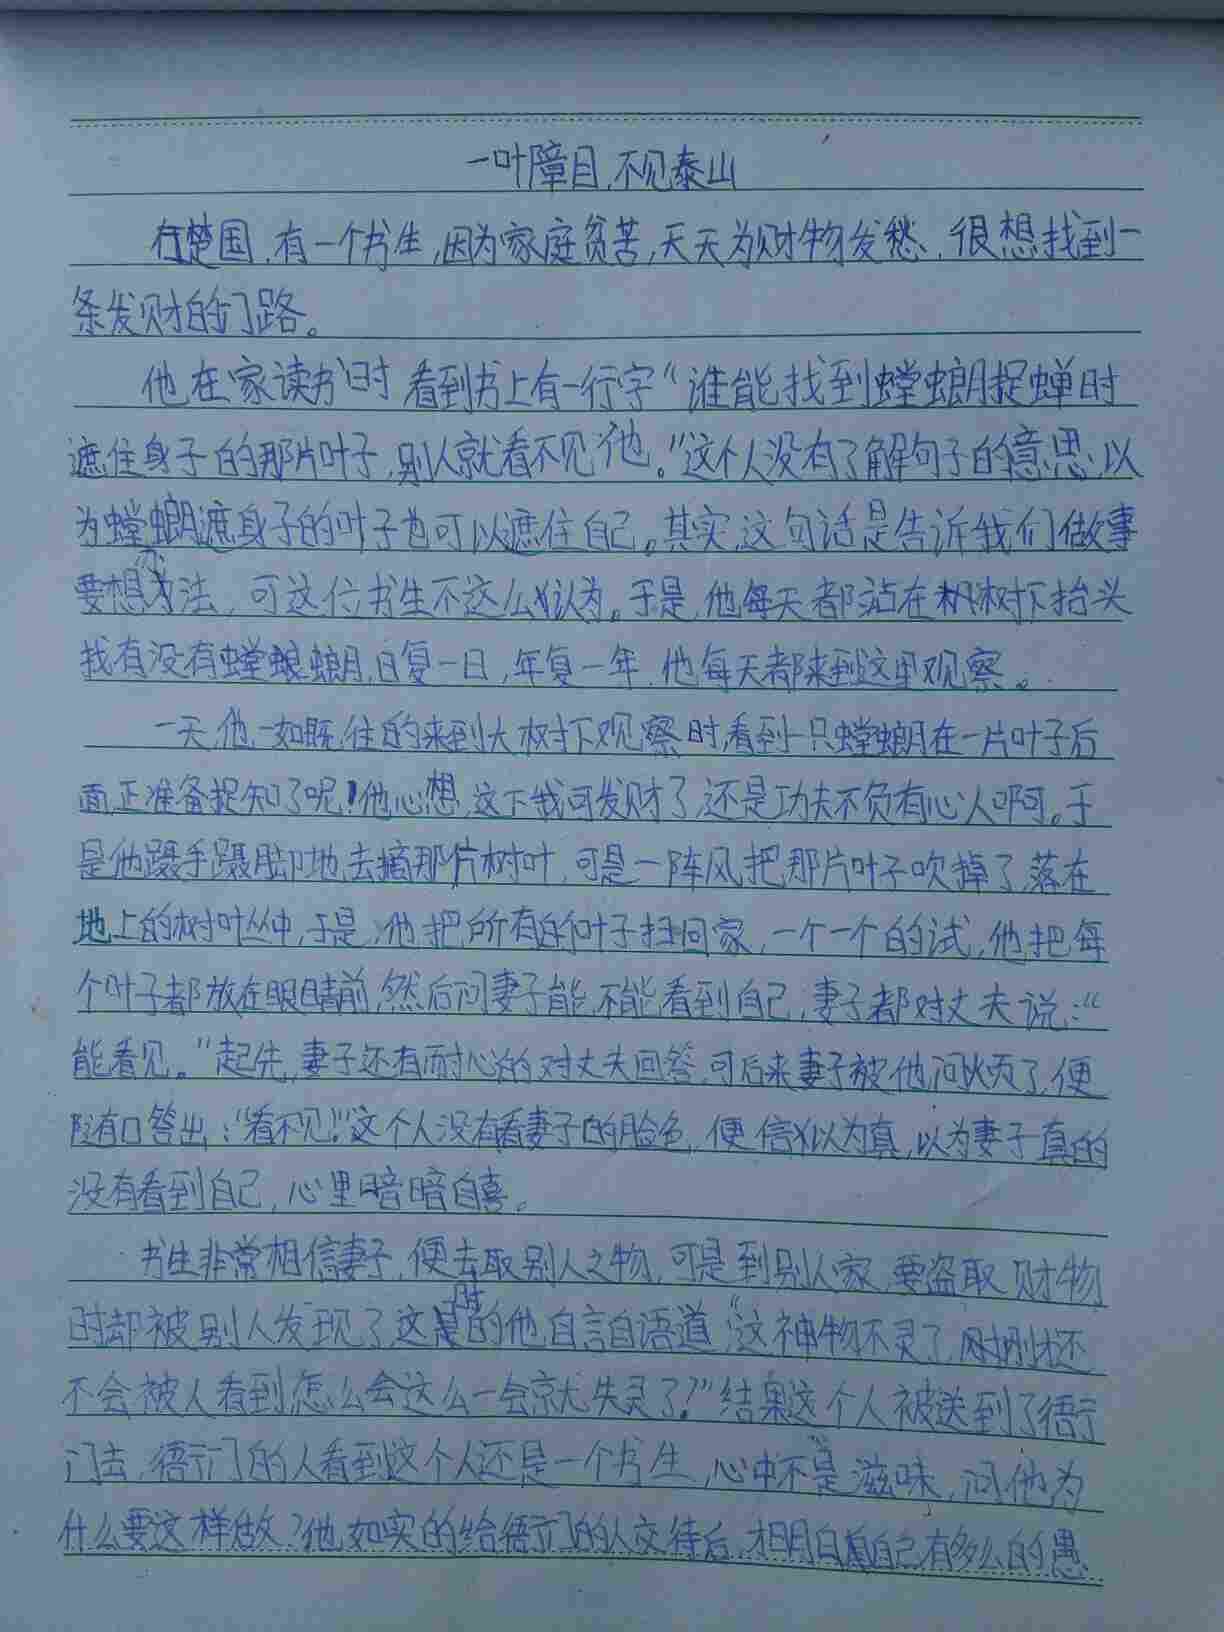 一叶障目,不见泰山
在楚国,有一个书生,因为家庭贫苦,天天为财物发愁,很想找到一
条发财的门路。
他在家读书时看到书上有一行字“谁能找到螳螂捉蝉时
遮住身子的那片叶子,别人就看不见他。”这个人没有了解句子的意思,以
为螳螂遮身子的叶子也可以遮住自己。其实,这句话是告诉我们做事
要想方法,可这位书生不这么认为。于是,他每天都站在树下抬头
找有没有螳螂,日复一日,年复一年,他每天都来到这里观察。
一天他一如既往的来到大树下观察时,看到一只螳螂在一片叶子后
面,正准备捉知了呢!他心想,这下我可发财了,还是功夫不负有心人啊。于
是他蹑手蹑脚地去摘那片树叶,可是一阵风把那片叶子吹掉了,落在
地上的树叶丛中,于是,他把所有的叶子扫回家,一个一个的试,他把每
个叶子都放在眼睛前,然后问妻子能不能看到自己,妻子都对丈夫说:“
能看见。”起先,妻子还有耐心的对丈夫回答,可后来妻子被他问烦了,便
随口答出:“看不见!”这个人没有看妻子的脸色,便信以为真,以为妻子真的
没有看到自己,心里暗暗自喜。
书生非常相信妻子,便去取别人之物,可是到别人家要盗取财物
时却被别人发现了,这时的他自言自语道,“这神物不灵了,刚刚还
不会被人看到怎么会这么一会就失灵了?”结果这个人被送到了衙
门去,衙门的人看到这个人还是一个书生,心中不是滋味,问他为
什么要这样做?他如实的给衙门的人交待后,才明白自己有多么的愚